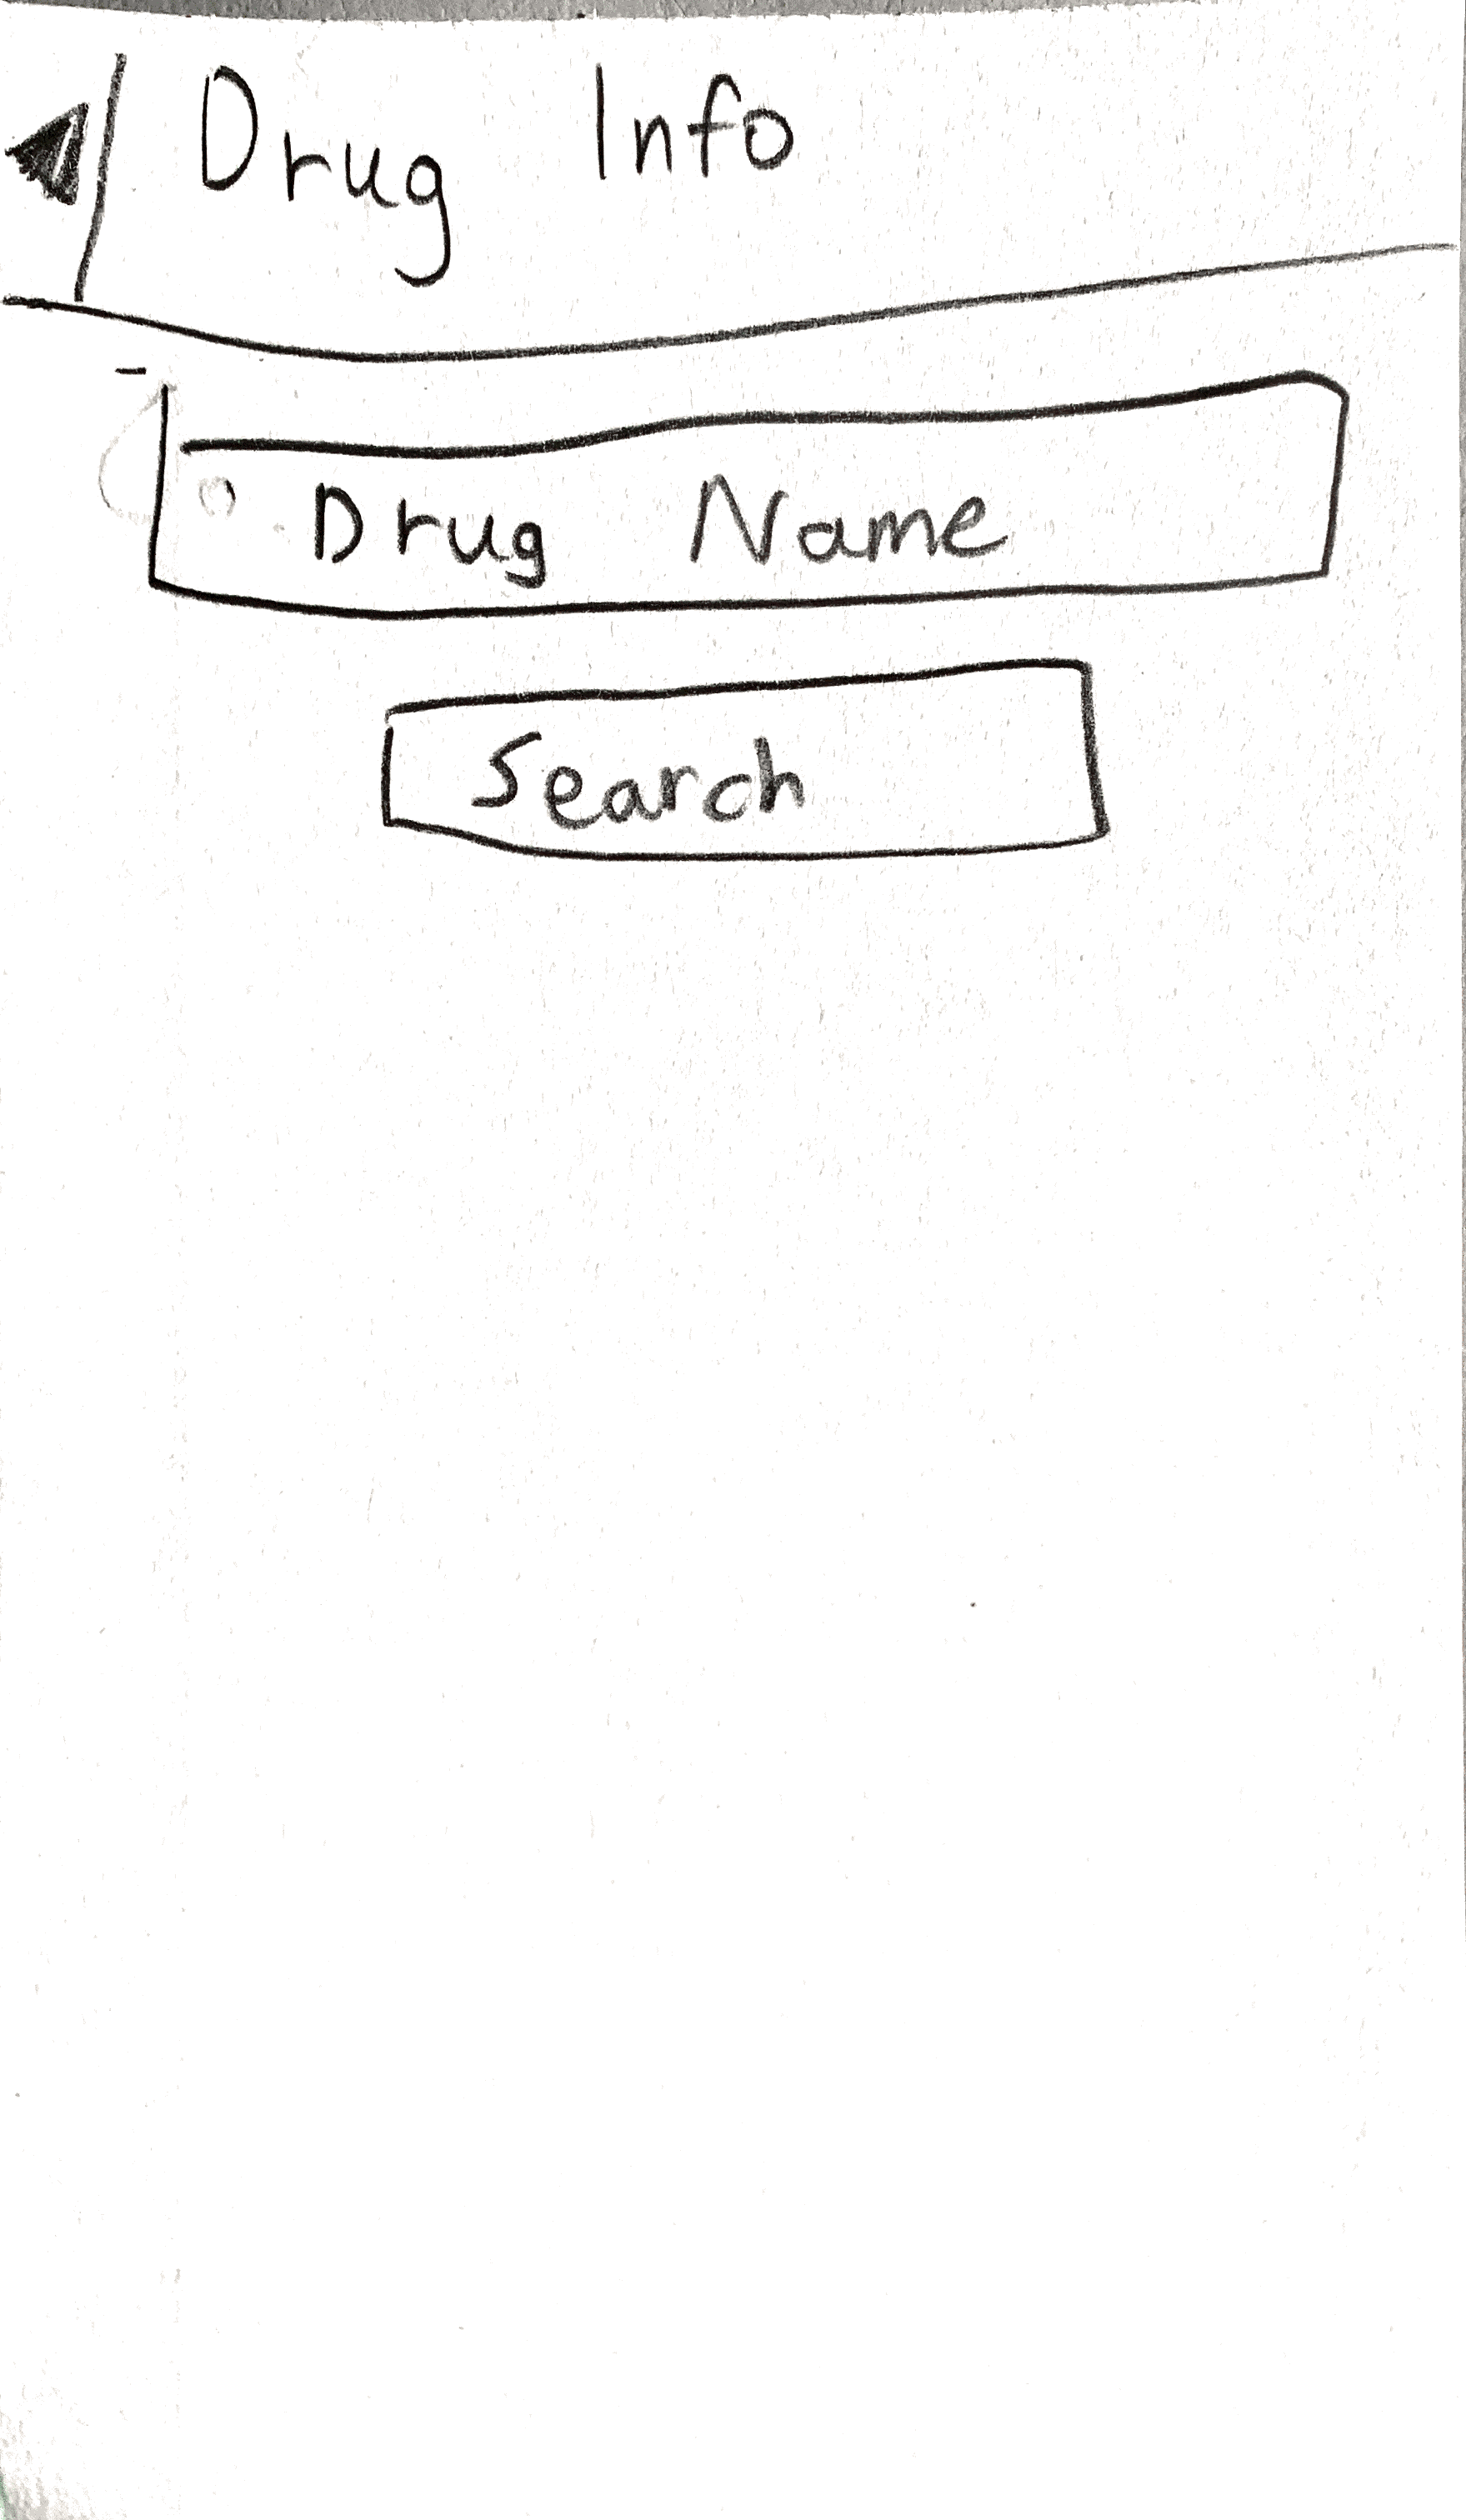 Drug Info
Drug Name
Search